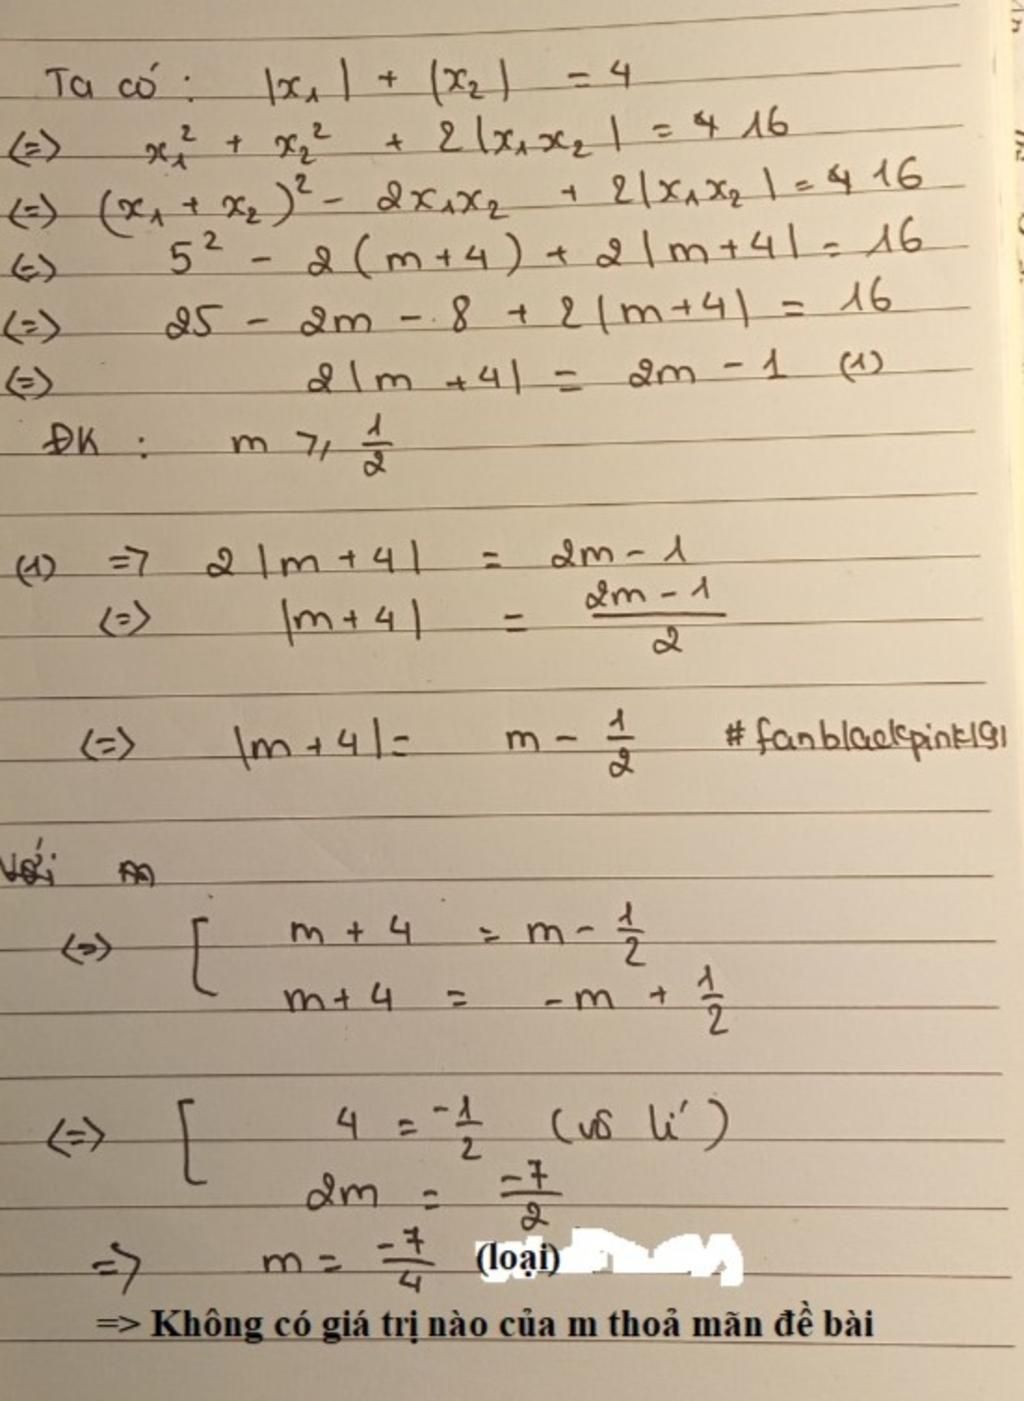 Ta có: |x₁| + |x₂| = 4
<=> x₁² + x₂² + 2|x₁x₂| = 4 16
<=> (x₁ + x₂)² - 2x₁x₂ + 2|x₁x₂| = 4 16
<=> 5² - 2(m+4) + 2|m+4| = 16
<=> 25 - 2m - 8 + 2|m+4| = 16
<=> 2|m+4| = 2m - 1 (1)
ĐK: m ≥ 1/2
(1) => 2|m+4| = 2m - 1
<=> |m+4| = (2m - 1)/2
<=> |m+4| = m - 1/2 #fanblackpink191
Với m
<=> [ m + 4 = m - 1/2
m + 4 = -m + 1/2
<=> [ 4 = -1/2 (vô lí)
2m = -7/2
=> m = -7/4 (loại)
=> Không có giá trị nào của m thoả mãn đề bài